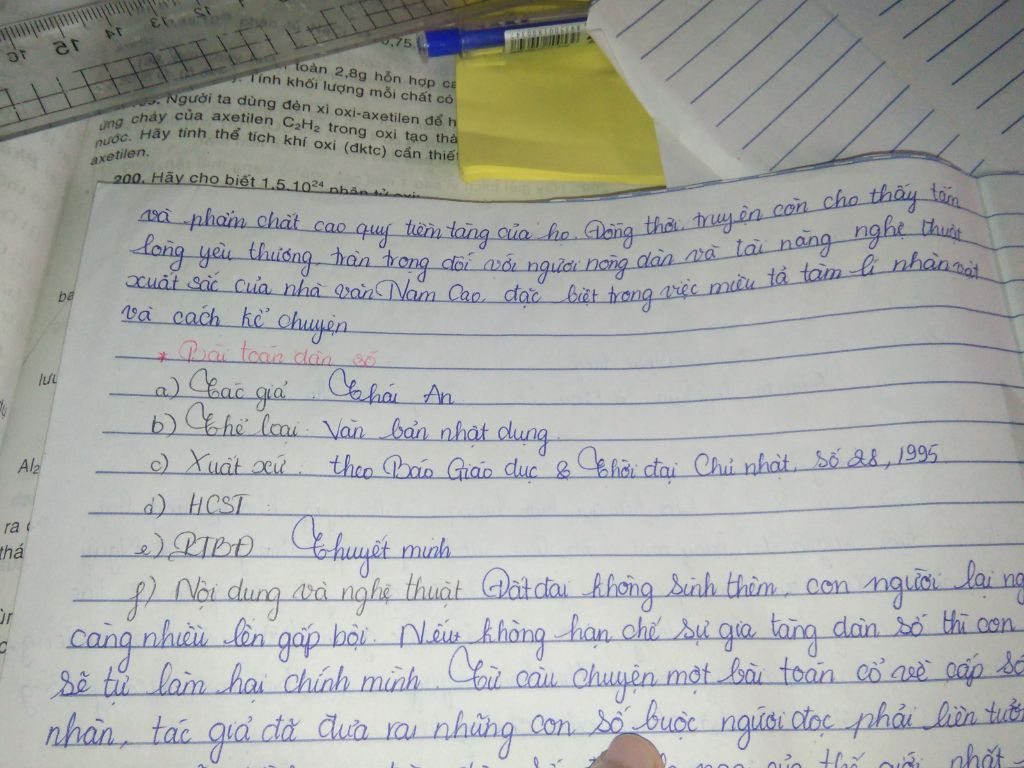 16 15 14 13 12
0,75
toàn 2,8g hỗn hợp
Tính khối lượng mỗi chất có
Người ta dùng đèn xì oxi-axetilen để
ứng cháy của axetilen C₂H₂ trong oxi tạo
nước. Hãy tính thể tích khí oxi (đktc) cần thiết
axetilen.
200. Hãy cho biết 1,5.10²⁴
và phẩm chất cao quý tiềm tàng của họ. Đồng thời, truyện còn cho thấy tấm
lòng yêu thương trân trọng đối với người nông dân và tài năng nghệ thuật
xuất sắc của nhà văn Nam Cao, đặc biệt trong việc miêu tả tâm lí nhân vật
và cách kể chuyện
* Bài toán dân số
a) Tác giả: Thái An
b) Thể loại: Văn bản nhật dụng.
c) Xuất xứ: theo Báo Giáo dục & Thời đại Chủ nhật, số 28, 1995
d) HCST:
e) PTBĐ: Thuyết minh
f) Nội dung và nghệ thuật Đất đai không sinh thêm, con người lại
càng nhiều lên gấp bội. Nếu không hạn chế sự gia tăng dân số thì con
sẽ tự làm hại chính mình. Từ câu chuyện một bài toán cổ về cấp số
nhân, tác giả đã đưa ra những con số buộc người đọc phải liên tưởng
của thế giới, nhất
Al₂
ra